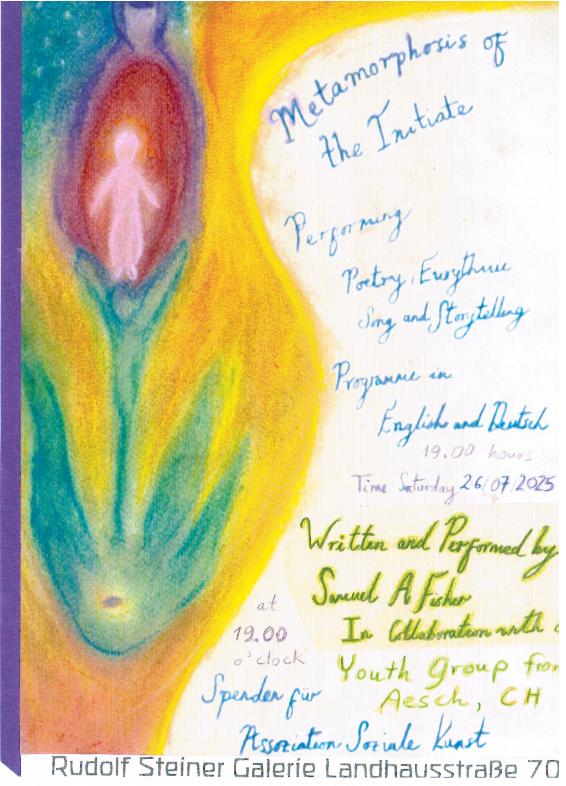 Metamorphosis of
the Initiate
Performing
Poetry, Eurythmie
Song and Storytelling
Programme in
English and Deutsch
19.00 hours
Time Saturday 26/07/2025
Written and Performed by
Samuel A Fisher
In Collaboration with
Youth Group
Aesch, CH
at
19.00
o'clock
Spenden für
Assoziation Soziale Kunst
Rudolf Steiner Galerie Landhausstraße 70